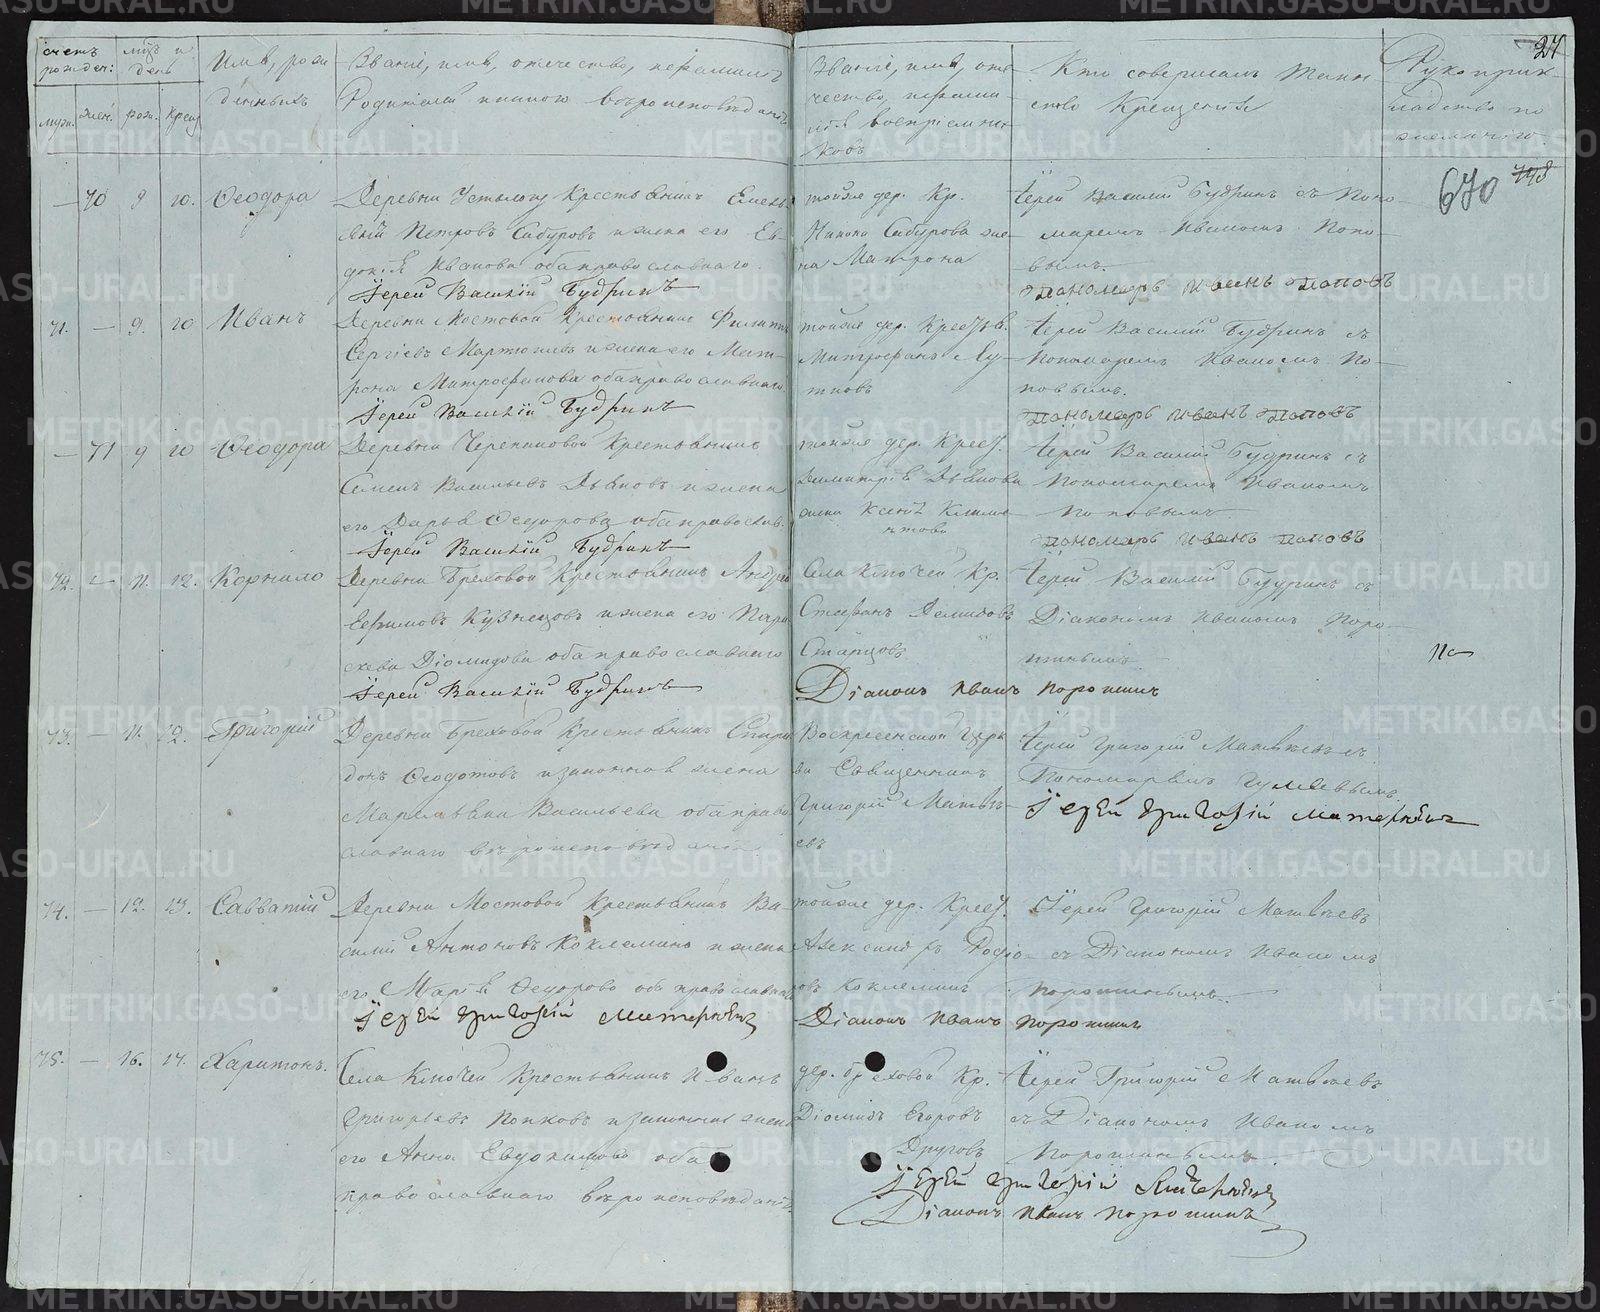 счетъ рожден:
муж. жен.
муж. и день
рож. крещ
Имѣ, рож
денныхъ
Званіе, имѣ, отечество, и фамилія
Родителей и какого вѣроисповѣданія
Званіе, имѣ, оте
чество, и фами
лія воспріемни
ковъ
Кто совершалъ таин
ство Крещенія
Рукоприк
ладство по
желанію
27
670
— 70 9 10. Ѳеодора
Деревни Крестьянинъ Емель
янъ Петровъ Сабуровъ и жена его Ев
докія Иванова оба православнаго
Іерей Василій Будринъ
тойже дер. Кр.
Никона Сабурова же
на Матрона
Іерей Василій Будринъ съ Поно
маремъ Иваномъ Попо
вымъ.
пономарь Иванъ Поповъ
71. — 9. 10 Иванъ
Деревни Мостовой Крестьянинъ Филиппъ
Сергіевъ Мартюшевъ и жена его Мат
рона Митрофанова оба православнаго
Іерей Василій Будринъ
тойже дер. Крестья.
Митрофанъ
Іерей Василій Будринъ съ
Пономаремъ Иваномъ По
повымъ.
пономарь Иванъ Поповъ
— 71 9 10 Ѳеодора
Деревни Черепановой Крестьянинъ
Семенъ Васильевъ Дьяковъ и жена
его Дарья Ѳедорова оба православ.
Іерей Василій Будринъ
тойже дер. Крест.
Димитрія Дьякова
жена Ксенія Климе
нтова
Іерей Василій Будринъ съ
Пономаремъ Иваномъ
Поповымъ
пономарь Иванъ Поповъ
72. — 11. 12. Корнило
Деревни Бреховой Крестьянинъ Андрей
Ефимовъ Кузнецовъ и жена его Пара
скева Діомидова оба православнаго
Іерей Василій Будринъ
Села Ключей Кр.
Стефанъ Демидовъ
Старцовъ
Іерей Василій Будринъ съ
Діакономъ Иваномъ Поро
шинымъ
Діаконъ Иванъ Порошинъ
73. — 11. 12. Григорій
Деревни Бреховой Крестьянинъ Спири
донъ Ѳеодотовъ и законная жена
Маремьяна Васильева оба право
славнаго вѣроисповѣданія
Воскресенской Церк
ви Священникъ
Григорій Матвѣ
евъ
Іерей Григорій Матвѣевъ съ
Пономаремъ
Іерей Григорій
74. — 12. 13. Савватій
Деревни Мостовой Крестьянинъ Ва
силій Антоновъ Коклеминъ и жена
его Марія Ѳедорова оба православнаго
Іерей Григорій
тойже дер. Крест.
Александръ Родіо
овъ Коклеминъ
Іерей Григорій Матвѣевъ
съ Діакономъ Иваномъ
Порошинымъ
Діаконъ Иванъ Порошинъ
75. — 16. 17. Харитонъ.
Села Ключей Крестьянинъ Иванъ
Григорьевъ Попковъ и законная жена
его Анна Евдокимова оба
православнаго вѣроисповѣданія.
дер. Бреховой Кр.
Діомидъ Егоровъ
Друговъ
Іерей Григорій Матвѣевъ
съ Діакономъ Иваномъ
Порошинымъ
Іерей Григорій
Діаконъ Иванъ Порошинъ
METRIKI.GASO-URAL.RU